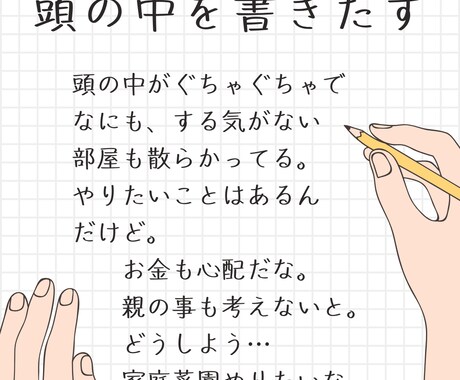 頭の中を書きだす
頭の中がぐちゃぐちゃで
なにも、する気がない
部屋も散らかってる。
やりたいことはあるん
だけど。
お金も心配だな。
親の事も考えないと。
どうしよう…
家庭菜園やりたいな